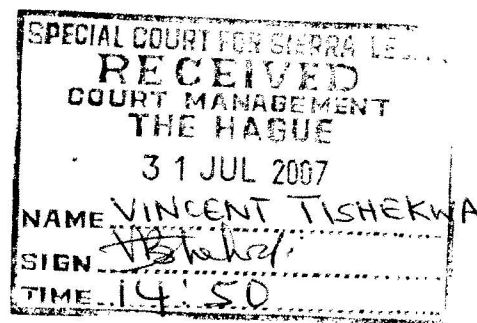 SPECIAL COURT FOR SIERRA LE
RECEIVED
COURT MANAGEMENT
THE HAGUE
31 JUL 2007
NAME VINCENT TISHEKWA
SIGN
TIME 14:50